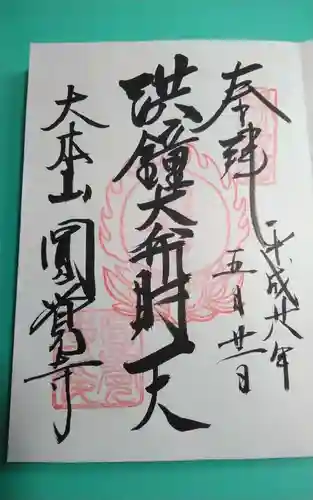 奉拝
平成廿八年
五月廿一日
洪鐘大弁財天
大本山 圓覚寺